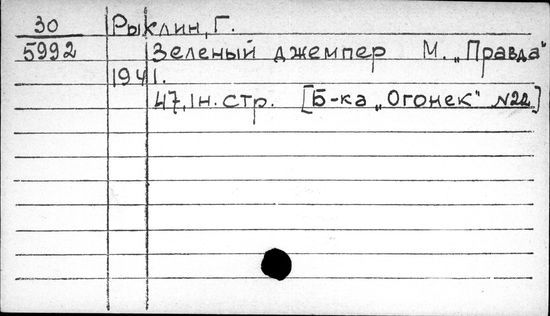 30 Рыклин, Г.
5992 Зеленый джемпер М. „Правда"
1941.
47, 1н. стр. [Б-ка „Огонек" №22]